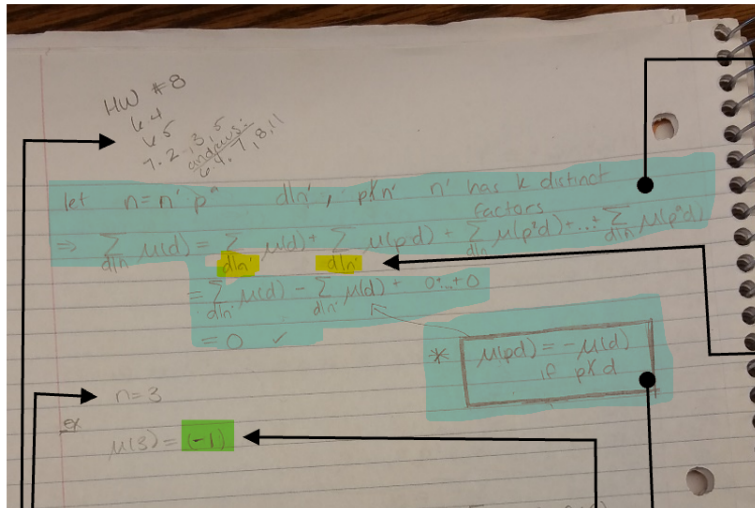 HW #8
6.4
6.5
7.2, 3, 5
andrews:
6.4, 7, 8, 11
let n = n' · pᵃ d|n', p∤n' n' has k distinct
factors
⇒ ∑_{d|n} μ(d) = ∑_{d|n'} μ(d) + ∑_{d|n'} μ(pd) + ∑_{d|n'} μ(p²d) + ... ∑_{d|n'} μ(pᵃd)
= ∑_{d|n'} μ(d) - ∑_{d|n'} μ(d) + 0+...+0
= 0 ✓
* μ(pd) = -μ(d)
if p∤d
n=3
ex
μ(3) = (-1)